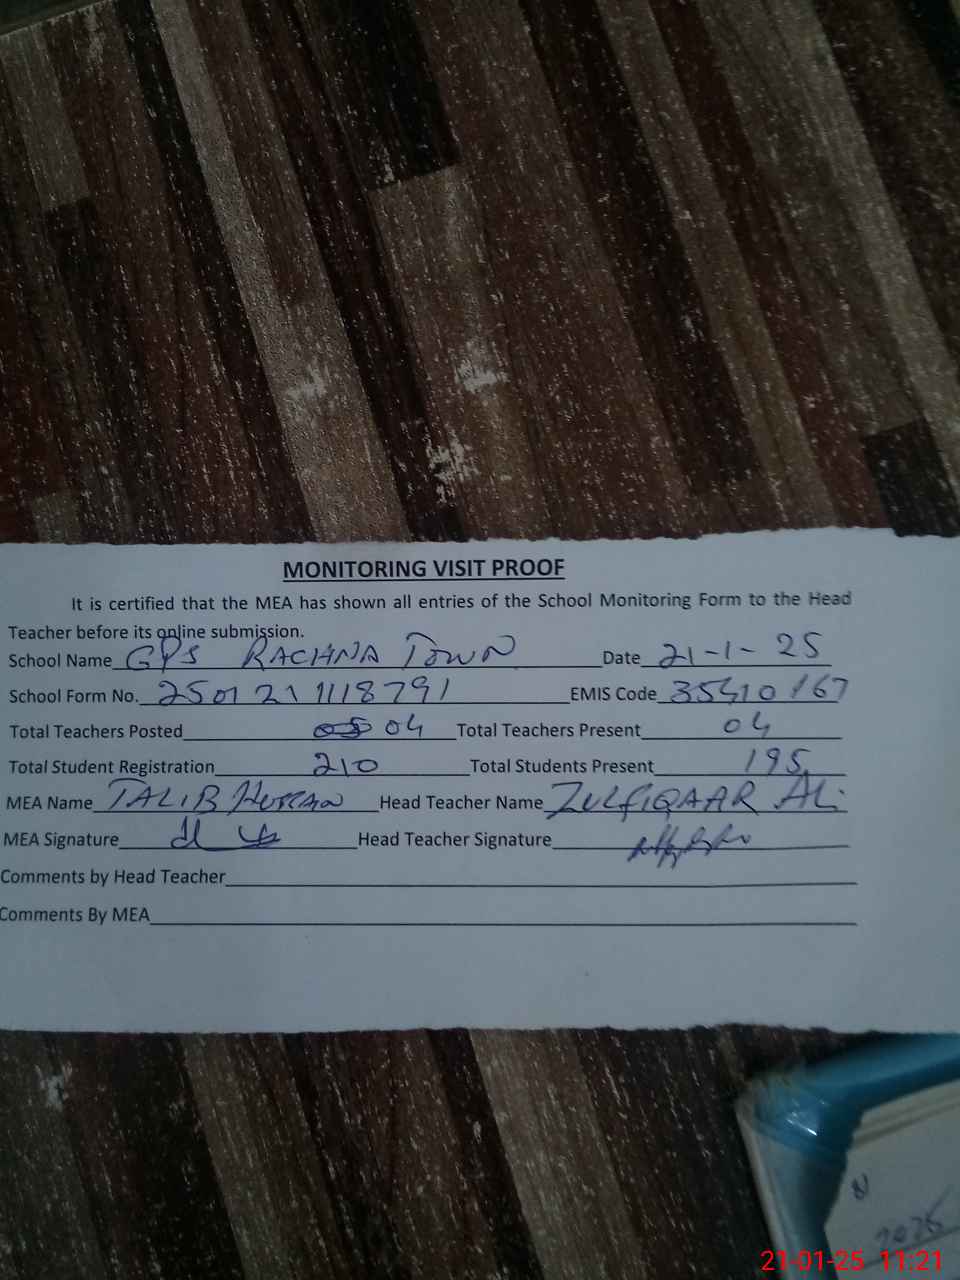 MONITORING VISIT PROOF
It is certified that the MEA has shown all entries of the School Monitoring Form to the Head
Teacher before its online submission.
School Name GPS RACHNA TOWN Date 21-1-25
School Form No. 250121 1118791 EMIS Code 35410167
Total Teachers Posted 04 Total Teachers Present 04
Total Student Registration 210 Total Students Present 195
MEA Name TALIB Hussain Head Teacher Name ZULFIQAAR ALi
MEA Signature Head Teacher Signature
Comments by Head Teacher
Comments By MEA
21-01-25 11:21